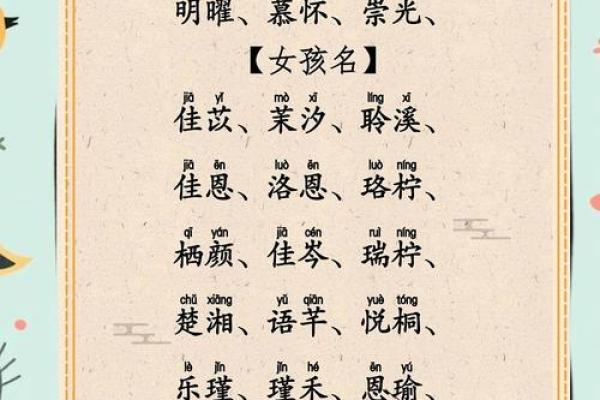 明曜、慕怀、崇光、
【女孩名】
jiā yǐ mò xī líng xī
佳苡、茉汐、聆溪、
jiā ēn luò ēn luò níng
佳恩、洛恩、珞柠、
qī yán jiā cén ruì níng
栖颜、佳岑、瑞柠、
chǔ xiāng yǔ qiān yuè tóng
楚湘、语芊、悦桐、
lè jǐn jǐn hé ēn yú
乐瑾、瑾禾、恩瑜、